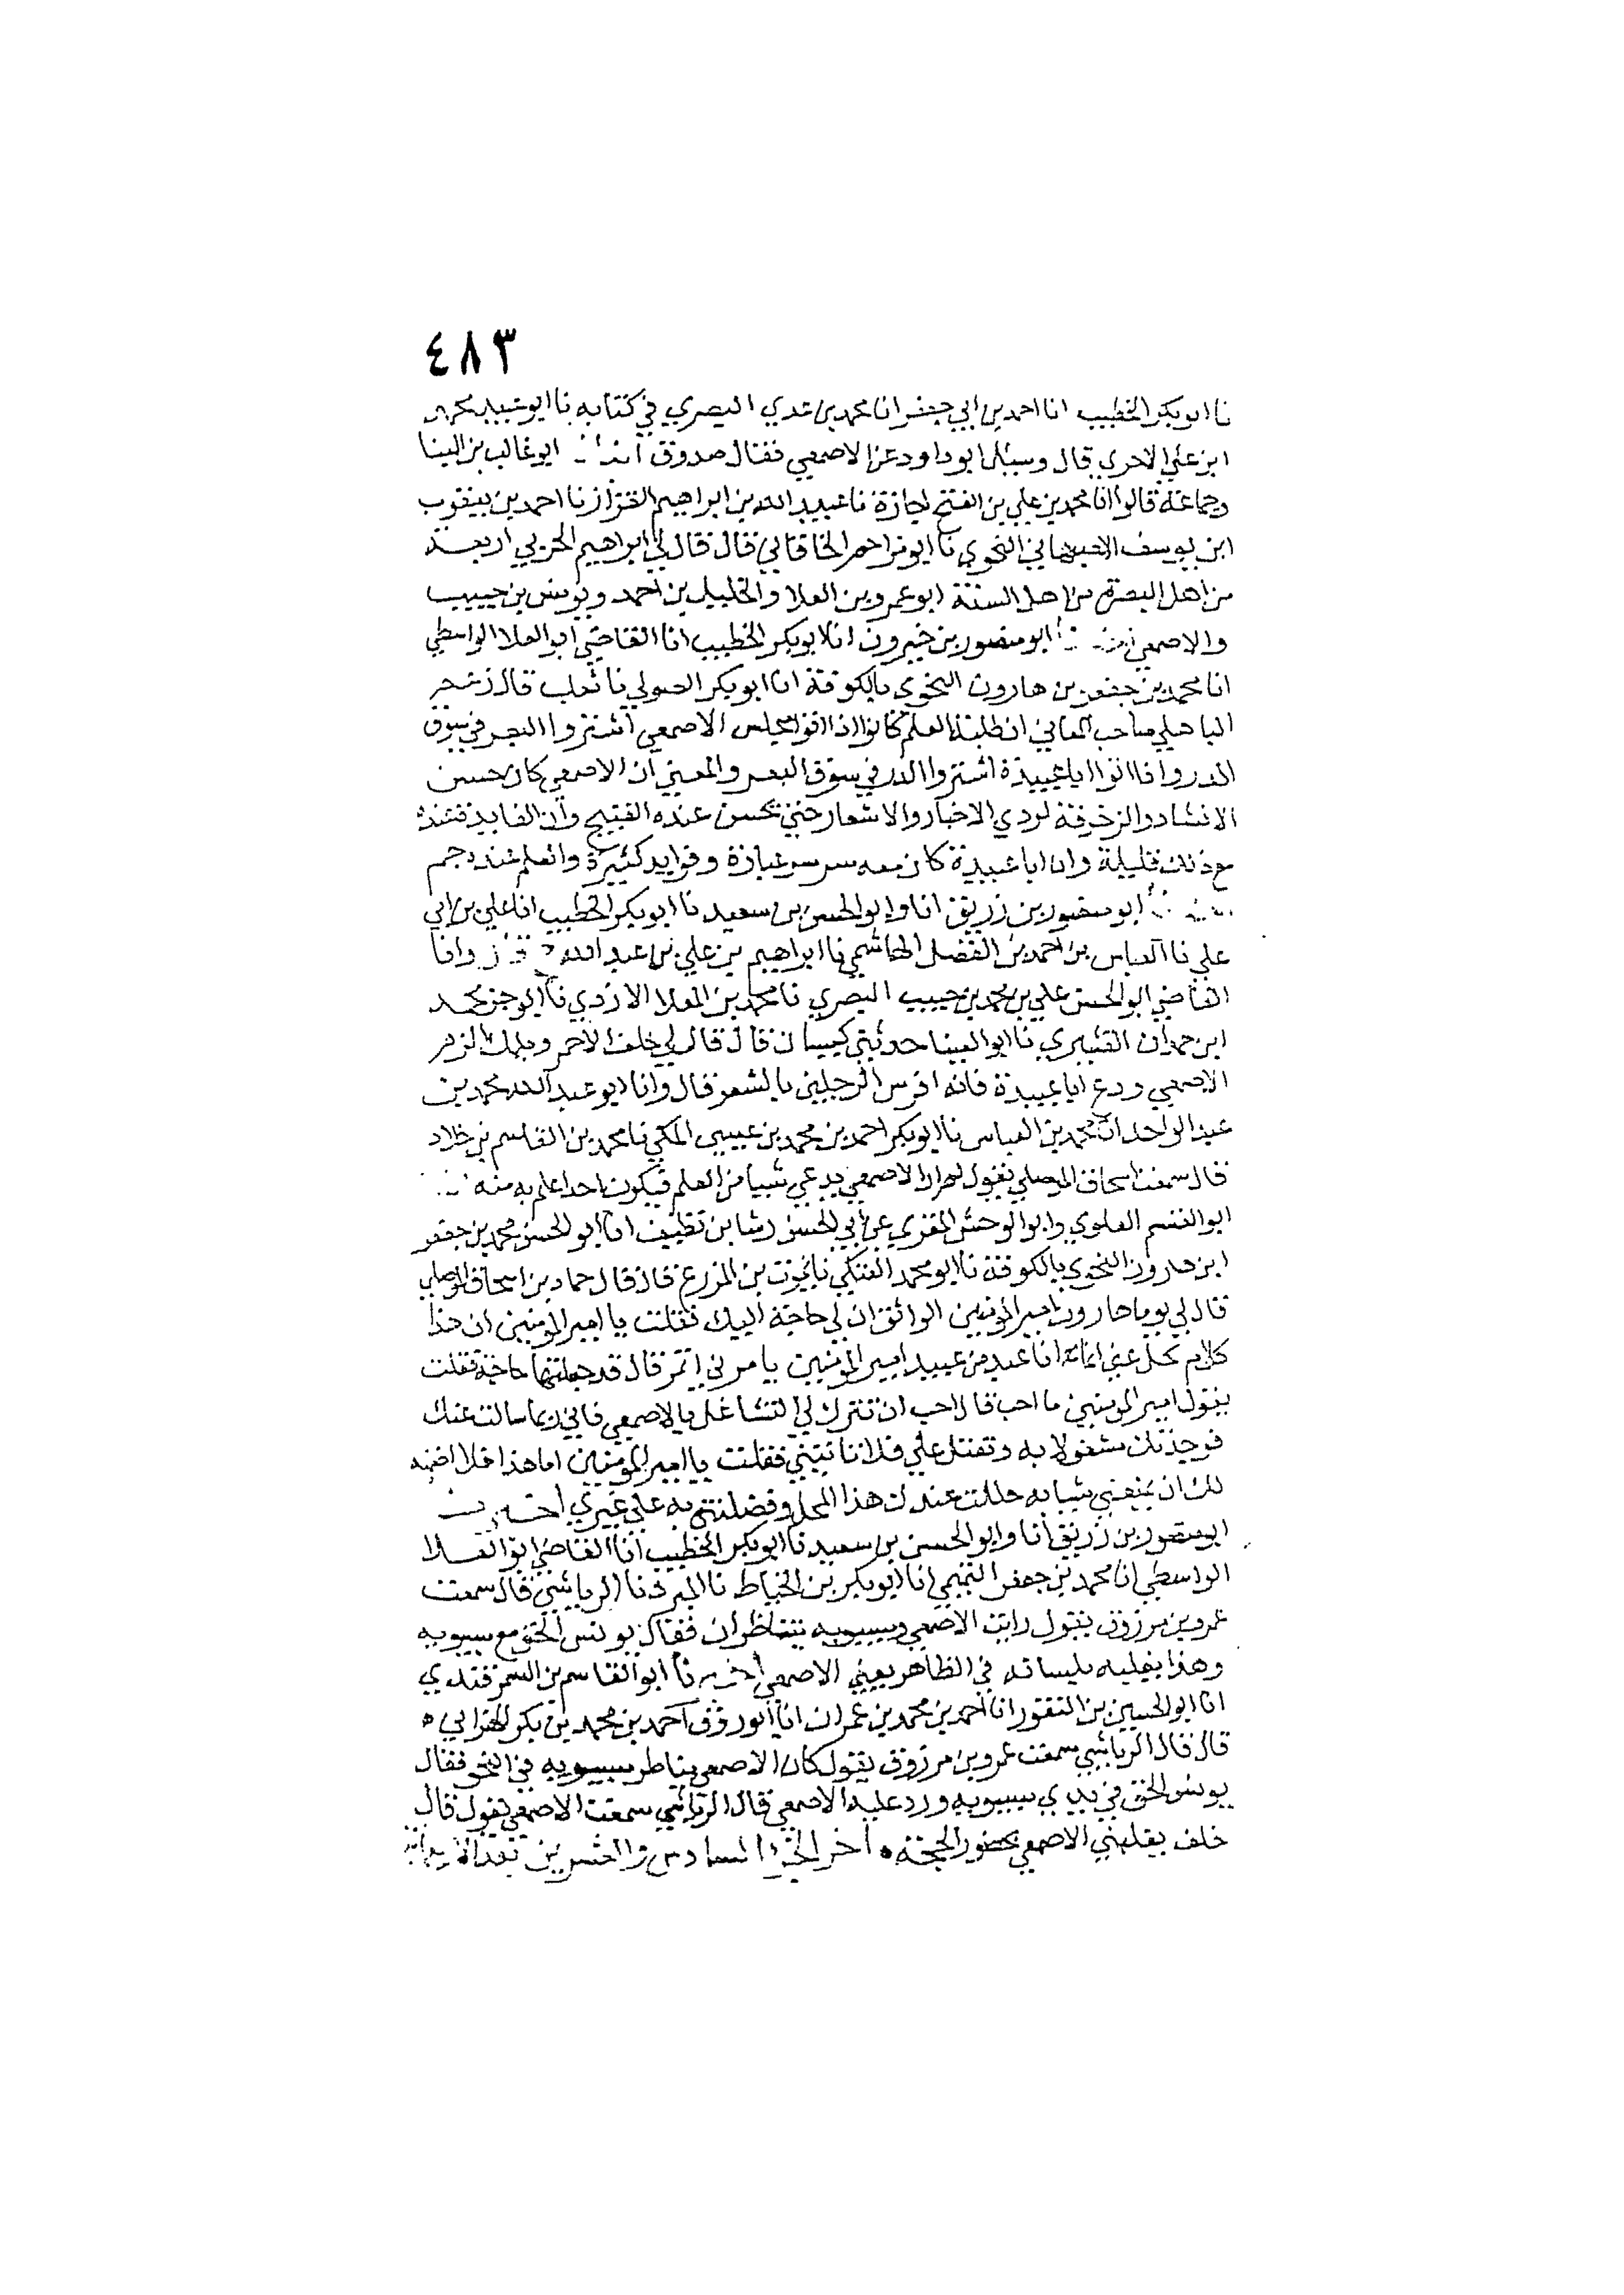 ٤٨٣
نا ابو بكر الخطيب انا احمد بن ابي جعفر انا محمد بن عدي البصري في كتابه نا ابو عبيد محمد
ابن علي الاجري قال وسئل ابو داود عن الاصمعي فقال صدوق ابو غالب بن البنا
وجماعة قالوا انا محمد بن علي بن الفتح اجازة نا عبيد الله بن ابراهيم القزاز نا احمد بن يعقوب
ابن يوسف الاصبهاني النحوي نا ابو مزاحم الخاقاني قال قال لي ابراهيم الحربي اربعة
من اهل البصرة من اهل السنة ابو عمرو بن العلا والخليل بن احمد ويونس بن حبيب
والاصمعي ابو منصور بن خيرون انا ابو بكر الخطيب انا القاضي ابو العلا الواسطي
انا محمد بن جعفر بن هارون النحوي بالكوفة انا ابو بكر الصولي نا ثعلب قال زعم
الباهلي صاحب المعاني ان طلبة العلم كانوا اذا اتوا مجلس الاصمعي اشتروا البعر في سوق
الدر واذا اتوا ابا عبيدة اشتروا الدر في سوق البعر والمعنى ان الاصمعي كان حسن
الانشاد والزخرفة لردي الاخبار والاشعار حتى يحسن عنده القبيح وان الفايدة عنده
مع ذلك قليلة وان ابا عبيدة كان معه سو عبارة وفوايد كثيرة والعلم عنده جم
ابو منصور بن زريق انا وابو الحسن بن سعيد نا ابو بكر الخطيب انا علي بن ابي
علي نا العباس بن احمد بن الفضل الهاشمي نا ابراهيم بن علي بن عبد الله قال وانا
القاضي ابو الحسن علي بن محمد بن حبيب البصري نا محمد بن المعلا الازدي نا ابو جز محمد
ابن حمدان القشيري نا ابو العينا حدثني كيسان قال قال لي خلف الاحمر ويلك الزم
الاصمعي ودع ابا عبيدة فانه افرس الرجلين بالشعر قال وانا ابو عبد الله محمد بن
عبد الواحد انا محمد بن العباس نا ابو بكر احمد بن محمد بن عيسى المكي نا محمد بن القاسم بن خلاد
قال سمعت اسحاق الموصلي يقول لم ار الاصمعي يدعي شيا من العلم فيكون احد اعلم به منه
ابو القسم العلوي وابو الوحش المقري عن ابي الحسن رشا بن نظيف انا ابو الحسن محمد بن جعفر
ابن هارون النحوي بالكوفة نا ابو محمد العتكي نا يموت بن المزرع قال قال حماد بن اسحاق الموصلي
قال لي يوما هارون امير المومنين الواثق ان لي حاجة اليك فقلت يا امير المومنين ان هذا
كلام يجل عني انما انا عبد من عبيد امير المومنين يامرني اتمر قال قد جعلتها حاجة فقلت
يقول امير المومنين ما احب قال احب ان تترك لي التشاغل بالاصمعي فاني ربما سالت عنك
فوجدتك مشغولا به وتعتل علي فلا تاتيني فقلت يا امير المومنين اما هذا فلا اضمنه
لك ان يمنعني شيا به حللت عندك هذا المحل وفضلتني به على غيري
ابو منصور بن زريق انا وابو الحسن بن سعيد نا ابو بكر الخطيب انا القاضي ابو العلا
الواسطي انا محمد بن جعفر التميمي انا ابو بكر بن الخياط نا المبرد نا الرياشي قال سمعت
عمرو بن مرزوق يقول رايت الاصمعي وسيبويه يتناظران فقال يونس الحق مع سيبويه
وهذا يغلبه بلسانه في الظاهر يعني الاصمعي اخبرنا ابو القاسم بن السمرقندي
انا ابو الحسين بن النقور انا احمد بن محمد بن عمران انا ابو روق احمد بن محمد بن بكر الهزاني ه
قال قال الرياشي سمعت عمرو بن مرزوق يقول كان الاصمعي يناظر سيبويه في النحو فقال
يونس الحق في يدي سيبويه ورد عليه الاصمعي قال الرياشي سمعت الاصمعي يقول قال
خلف يغلبني الاصمعي بحضور الحجة ه اخر الجز السادس والعشرين بعد